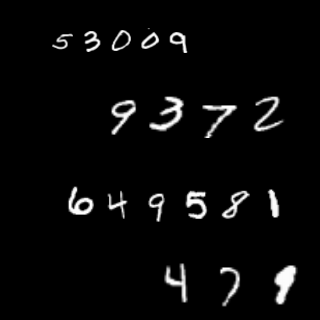 53009
9372
649581
479